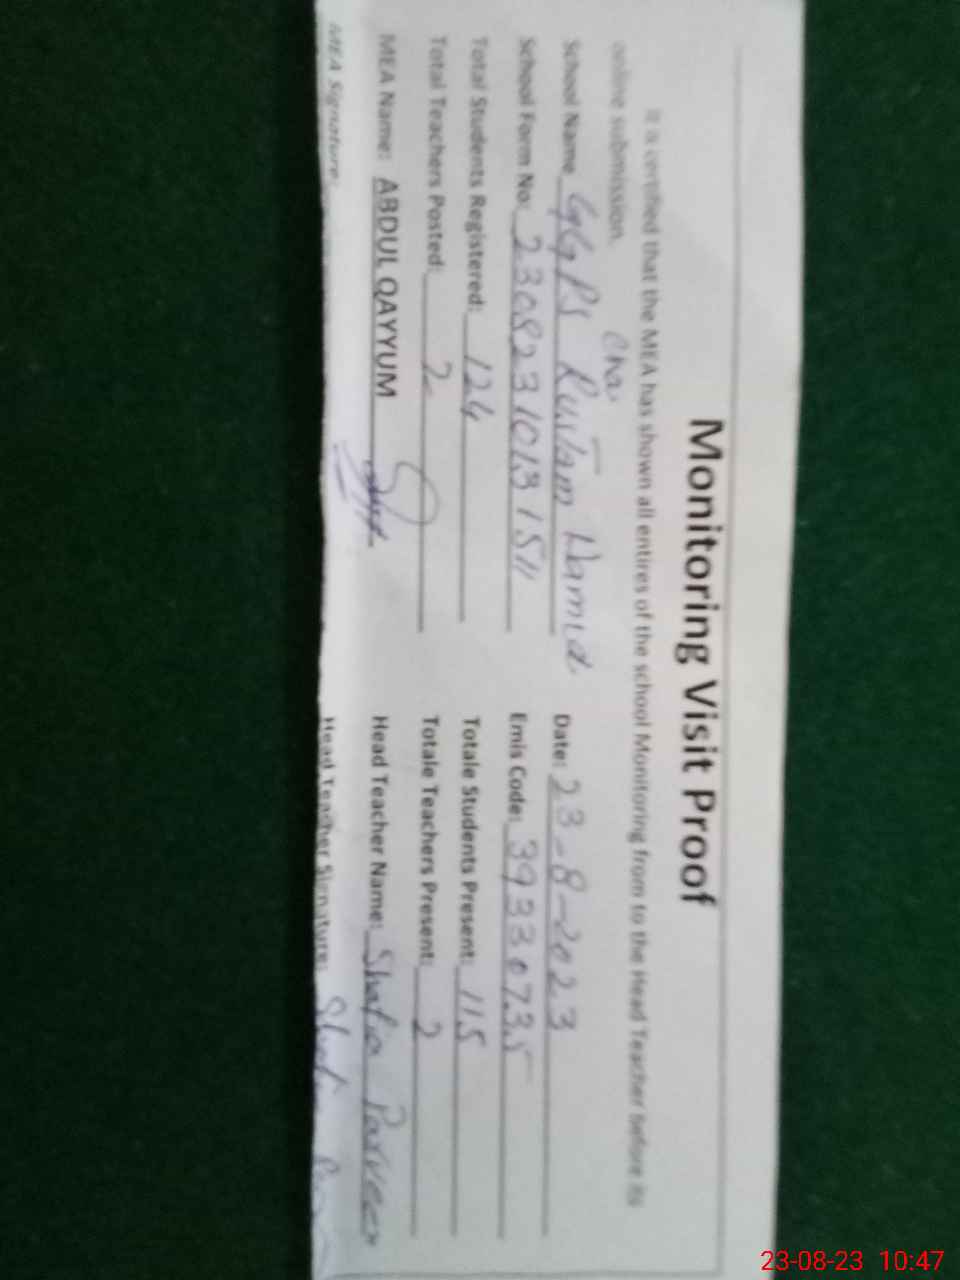 Monitoring Visit Proof
It is certified that the MEA has shown all entires of the school Monitoring from to the Head Teacher before its
online submission.
Cha
School Name GGPS Rustam Hamid Date: 23-8-2023
School Form No: Emis Code: 39330735
Total Students Registered: 124 Totale Students Present: 115
Total Teachers Posted: 2 Totale Teachers Present: 2
MEA Name: ABDUL QAYYUM Head Teacher Name: Parveen
MEA Signature: Head Teacher Signature:
23-08-23 10:47